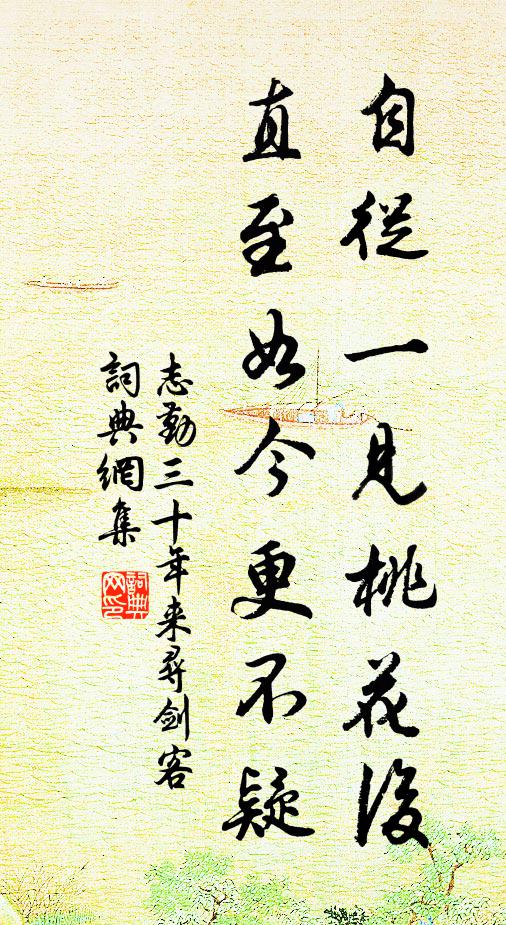 自從一見桃花後
直至如今更不疑
志勤三十年来尋劍客
詞典網集
詞典网印